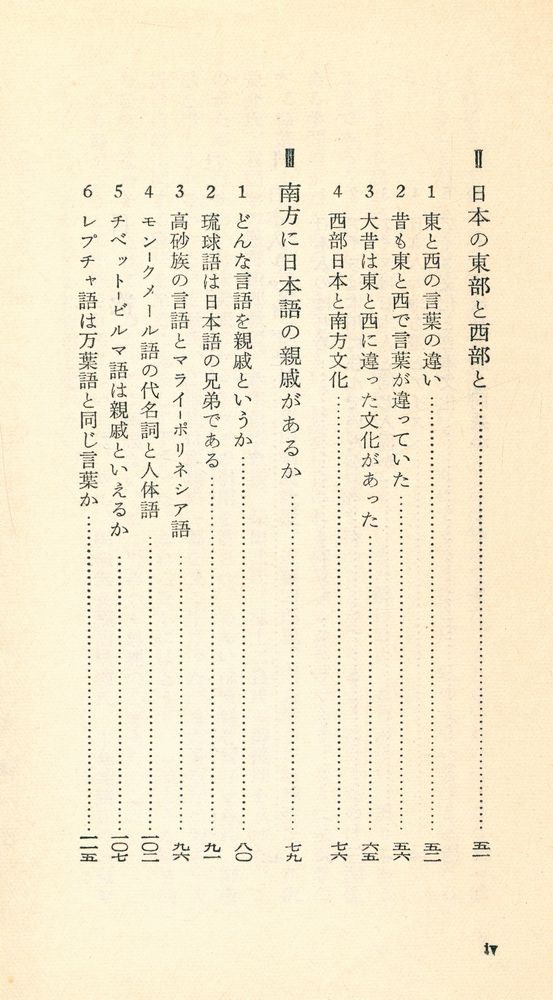 Ⅱ 日本の東部と西部と……………………五一
1 東と西の言葉の違い……………………五二
2 昔も東と西で言葉が違っていた……………………五六
3 大昔は東と西に違った文化があった……………………六五
4 西部日本と南方文化……………………七六
Ⅲ 南方に日本語の親戚があるか……………………七九
1 どんな言語を親戚というか……………………八〇
2 琉球語は日本語の兄弟である……………………九一
3 高砂族の言語とマライ=ポリネシア語……………………九六
4 モン=クメール語の代名詞と人体語……………………一〇二
5 チベット=ビルマ語は親戚といえるか……………………一〇七
6 レプチャ語は万葉語と同じ言葉か……………………一一五
iv